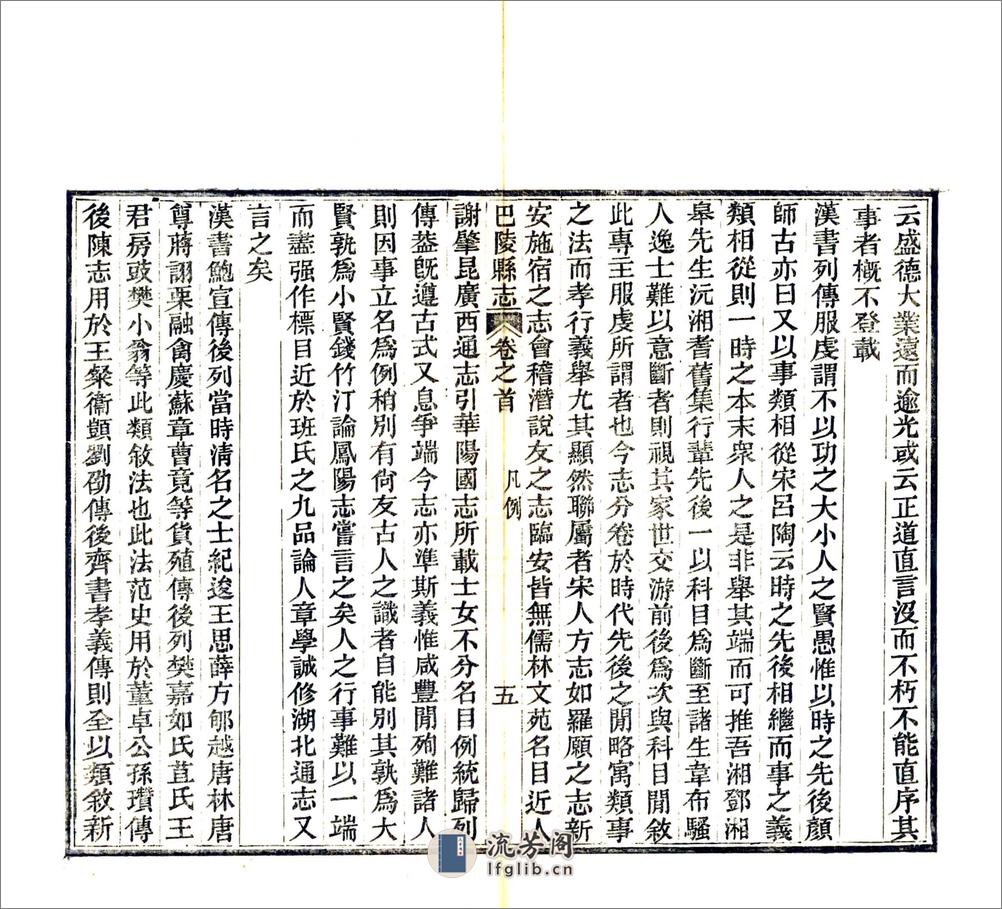 云盛德大業遠而逾光或云正道直言沒而不朽不能直序其
事者槪不登載
漢書列傳服虔謂不以功之大小人之賢愚惟以時之先後顏
師古亦曰又以事類相從宋呂陶云時之先後相繼而事之義
類相從則一時之本末衆人之是非舉其端而可推吾湘鄧湘
皋先生沅湘耆舊集行輩先後一以科目爲斷至諸生韋布騷
人逸士難以意斷者則視其家世交游前後爲次與科目閒敘
此專主服虔所謂者也今志分卷於時代先後之閒略寓類事
之法而孝行義舉尤其顯然聯屬者宋人方志如羅願之志新
安施宿之志會稽潛說友之志臨安皆無儒林文苑名目近人
巴陵縣志 卷之首 凡例 五
謝肇昆廣西通志引華陽國志所載士女不分名目例統歸列
傳葢旣遵古式又息爭端今志亦準斯義惟咸豐閒殉難諸人
則因事立名爲例稍別有尙友古人之識者自能別其孰爲大
賢孰爲小賢錢竹汀論鳳陽志嘗言之矣人之行事難以一端
而盡强作標目近於班氏之九品論人章學誠修湖北通志又
言之矣
漢書鮑宣傳後列當時淸名之士紀逡王思薛方郇越唐林唐
尊蔣詡栗融禽慶蘇章曹竟等貨殖傳後列樊嘉如氏苴氏王
君房豉樊小翁等此類敘法也此法范史用於董卓公孫瓚傳
後陳志用於王粲衞顗劉劭傳後齊書孝義傳則全以類敘新
流芳阁
lfglib.cn